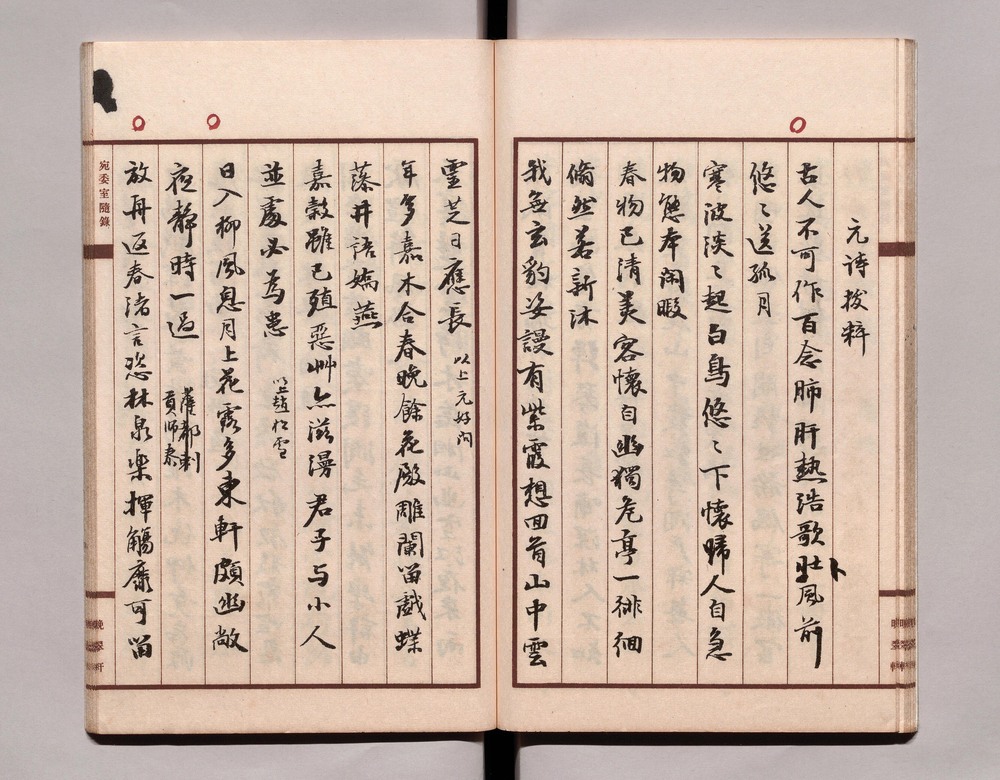 元詩拔粹
古人不可作百念肺肝熱浩歌壯風前
悠〻送孤月
寒波淡〻起白鳥悠〻下懷歸人自急
物態本閑暇
春物已清美客懷自幽獨危亭一徘徊
翛然若新沐
我無玄豹姿謾有紫霞想回首山中雲
靈芝日應長 以上元好問
年多嘉木合春晚餘花殿雕闌留戲蝶
藻井語嬌燕
嘉穀雖已殖惡艸亦滋漫君子与小人
並處必為患 以上趙松雪
日入柳風息月上花露多東軒頗幽敞
夜靜時一過 薩都剌 貢師泰
放舟返春渚言恣林泉樂揮觴靡可留
宛委室隨錄